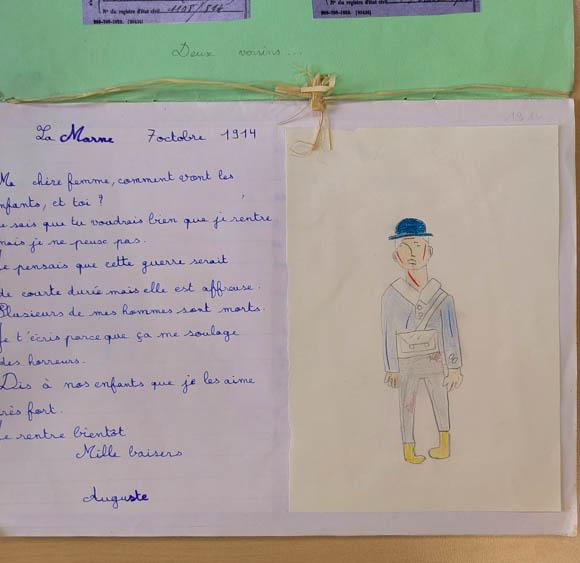 N° du registre d'état civil 1105/597
N° du registre d'état civil
Deux voisins...
1914
La Marne 7 octobre 1914
Ma chère femme, comment vont les
nfants, et toi ?
e sais que tu voudrais bien que je rentre
mais je ne peux pas.
e pensais que cette guerre serait
de courte durée mais elle est affreuse.
Plusieurs de mes hommes sont morts.
Je t'écris parce que ça me soulage
des horreurs.
Dis à nos enfants que je les aime
rès fort.
e rentre bientôt
Mille baisers
Auguste